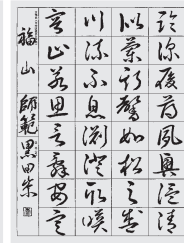 臨深履薄夙興溫凊
似蘭斯馨如松之盛
川流不息淵澄取映
容止若思言辭安定
福山 師範 黒田